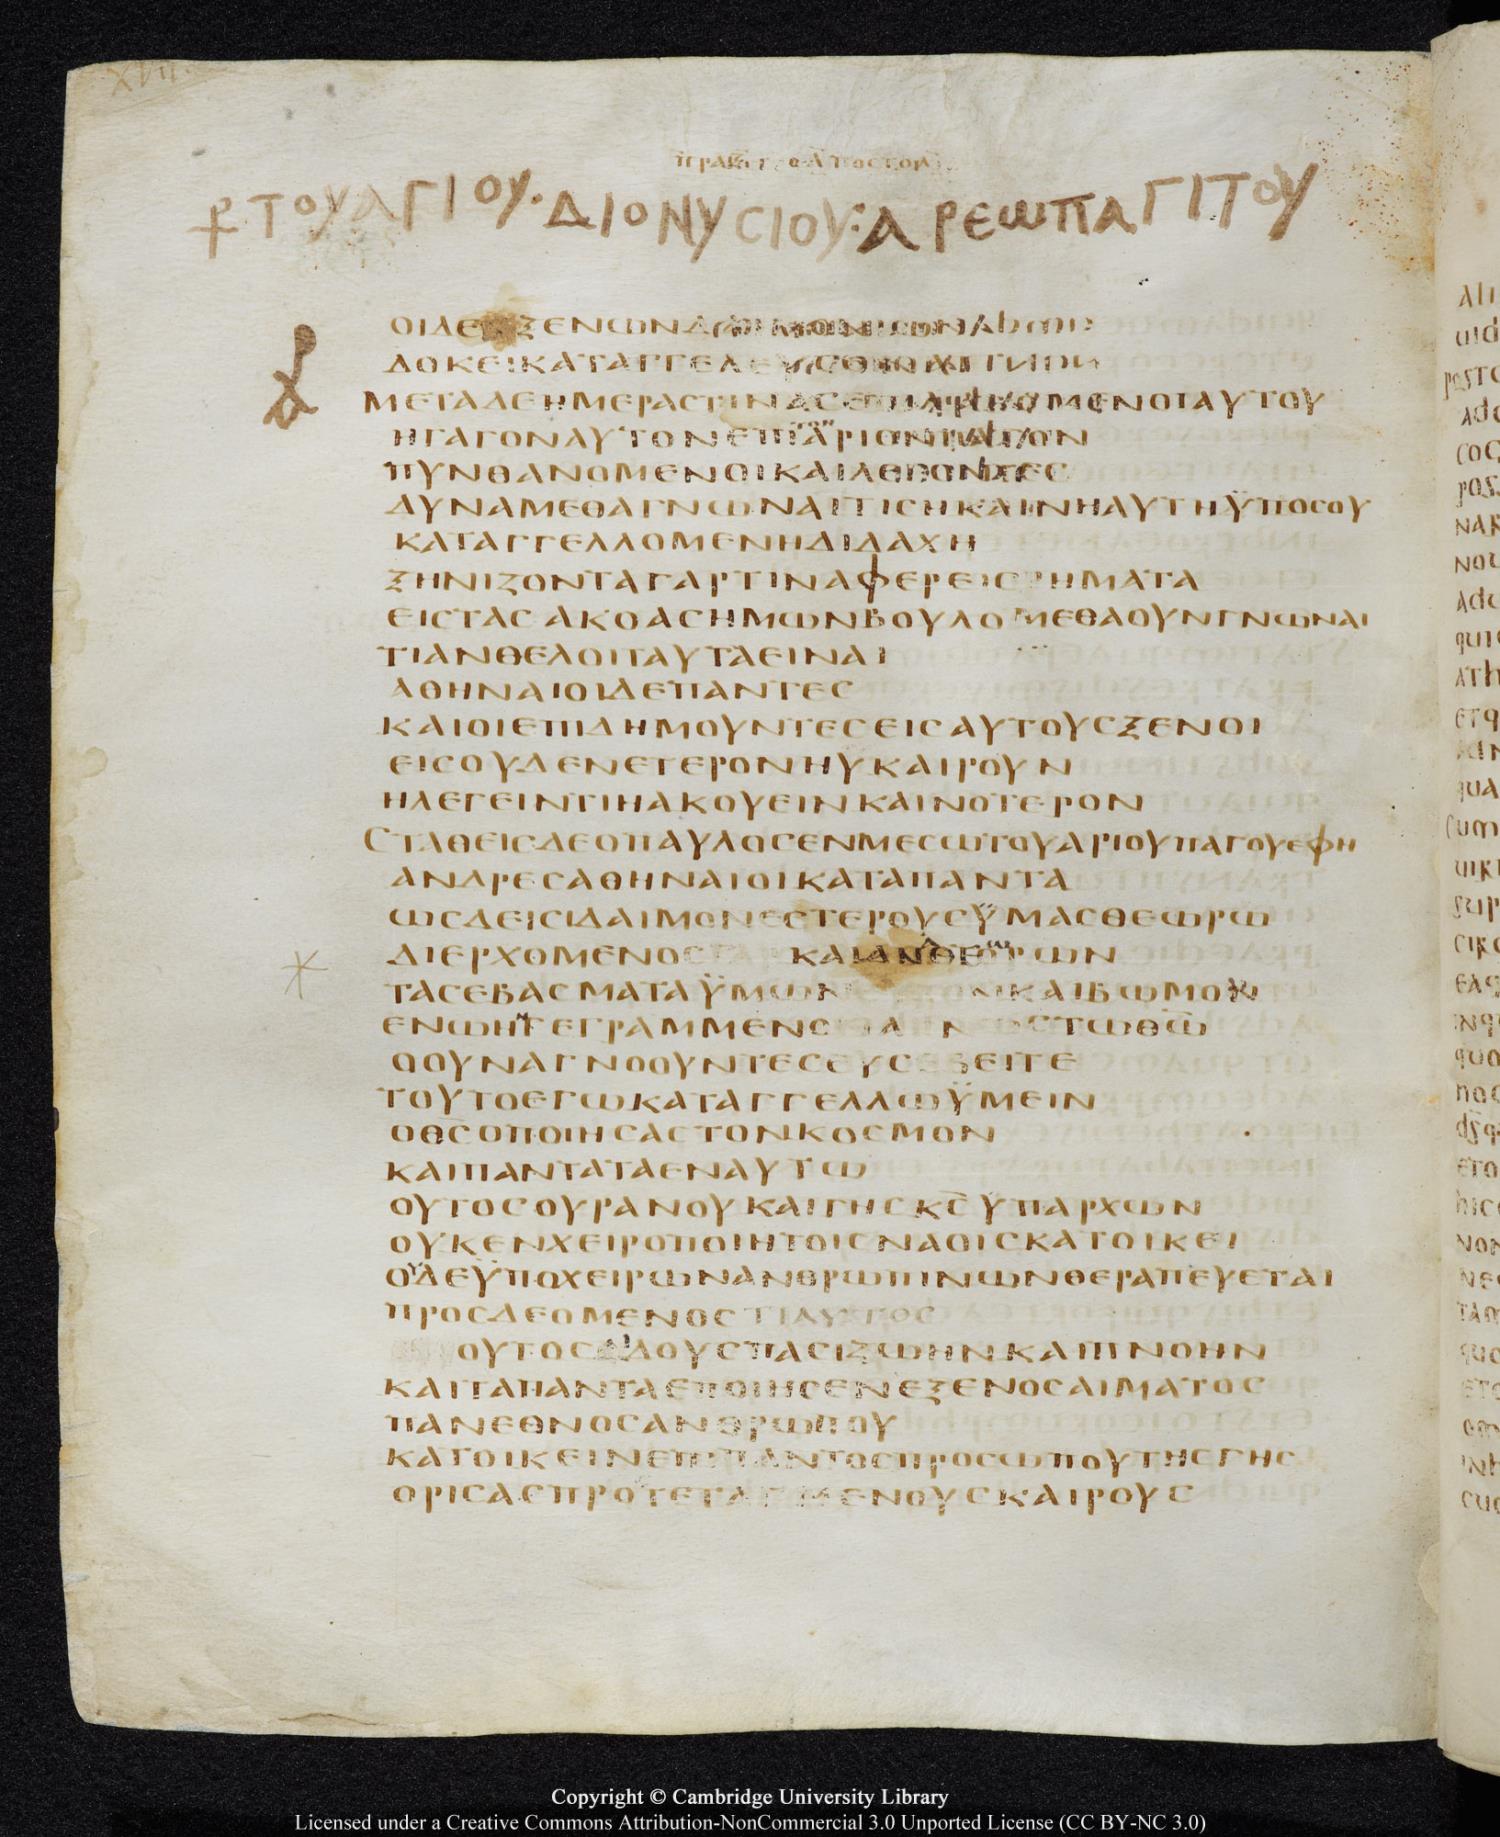 XVII.
ΠΡΑΞ ΑΠΟΣΤΟΛ
⳨ ΤΟΥ ΑΓΙΟΥ· ΔΙΟΝΥCΙΟΥ: ΑΡΕΩΠΑΓΙΤΟΥ
ΟΙΔΕ ΞΕΝΩΝ
ΔΟΚΕΙΚΑΤΑΓΓΕΛΕΥC
ΜΕΤΑΔΕΗΜΕΡΑCΤΙΝΑCΕΠΙΛΑΒΟΜΕΝΟΙΑΥΤΟΥ
ΗΓΑΓΟΝΑΥΤΟΝΕΠΙΑΡΙΟΝΠΑΓΟΝ
ΠΥΝΘΑΝΟΜΕΝΟΙΚΑΙΛΕΓΟΝΤΕC
ΔΥΝΑΜΕΘΑΓΝΩΝΑΙΤΙCΗΚΑΙΝΗΑΥΤΗΫΠΟCΟΥ
ΚΑΤΑΓΓΕΛΛΟΜΕΝΗΔΙΔΑΧΗ
ΞΗΝΙΖΟΝΤΑΓΑΡΤΙΝΑΦΕΡΕΙCΡΗΜΑΤΑ
ΕΙCΤΑCΑΚΟΑCΗΜΩΝΒΟΥΛΟΜΕΘΑΟΥΝΓΝΩΝΑΙ
ΤΙΑΝΘΕΛΟΙΤΑΥΤΑΕΙΝΑΙ
ΑΘΗΝΑΙΟΙΔΕΠΑΝΤΕC
ΚΑΙΟΙΕΠΙΔΗΜΟΥΝΤΕCΕΙCΑΥΤΟΥCΞΕΝΟΙ
ΕΙCΟΥΔΕΝΕΤΕΡΟΝΗΥΚΑΙΡΟΥΝ
ΗΛΕΓΕΙΝΤΙΗΑΚΟΥΕΙΝΚΑΙΝΟΤΕΡΟΝ
CΤΑΘΕΙCΔΕΟΠΑΥΛΟCΕΝΜΕCΩΤΟΥΑΡΙΟΥΠΑΓΟΥΕΦΗ
ΑΝΔΡΕCΑΘΗΝΑΙΟΙΚΑΤΑΠΑΝΤΑ
ΩCΔΕΙCΙΔΑΙΜΟΝΕCΤΕΡΟΥCΫΜΑCΘΕΩΡΩ
ΔΙΕΡΧΟΜΕΝΟC ΚΑΙ ΡΩΝ
ΤΑCΕΒΑCΜΑΤΑΫΜΩΝ ΚΑΙΒΩΜΟΝ
ΕΝΩΗΝΓΕΓΡΑΜΜΕΝΟ Α Ν CΤΩΘΩ
ΟΟΥΝΑΓΝΟΟΥΝΤΕCΕΥCΕΒΕΙΤΕ
ΤΟΥΤΟΕΓΩΚΑΤΑΓΓΕΛΛΩΫΜΕΙΝ
ΟΘCΟΠΟΙΗCΑCΤΟΝΚΟCΜΟΝ
ΚΑΙΠΑΝΤΑΤΑΕΝΑΥΤΩ
ΟΥΤΟCΟΥΡΑΝΟΥΚΑΙΓΗCΚ̅C̅ΫΠΑΡΧΩΝ
ΟΥΚΕΝΧΕΙΡΟΠΟΙΗΤΟΙCΝΑΟΙCΚΑΤΟΙΚΕΙ
ΟΥΔΕΫΠΟΧΕΙΡΩΝΑΝΘΡΩΠΙΝΩΝΘΕΡΑΠΕΥΕΤΑΙ
ΠΡΟCΔΕΟΜΕΝΟC
ΟΥΤΟCΔΙΔΟΥCΠΑCΙΖΩΗΝΚΑΙΠΝΟΗΝ
ΚΑΙΤΑΠΑΝΤΑΕΠΟΙΗCΕΝΕΞΕΝΟCΑΙΜΑΤΟC
ΠΑΝΕΘΝΟCΑΝΘΡΩΠΟΥ
ΚΑΤΟΙΚΕΙΝΕΠΙΠΑΝΤΟCΠΡΟCΩΠΟΥΤΗCΓΗC
ΟΡΙCΑCΠΡΟΤΕΤΑΓΜΕΝΟΥCΚΑΙΡΟΥC
Copyright © Cambridge University Library
Licensed under a Creative Commons Attribution-NonCommercial 3.0 Unported License (CC BY-NC 3.0)